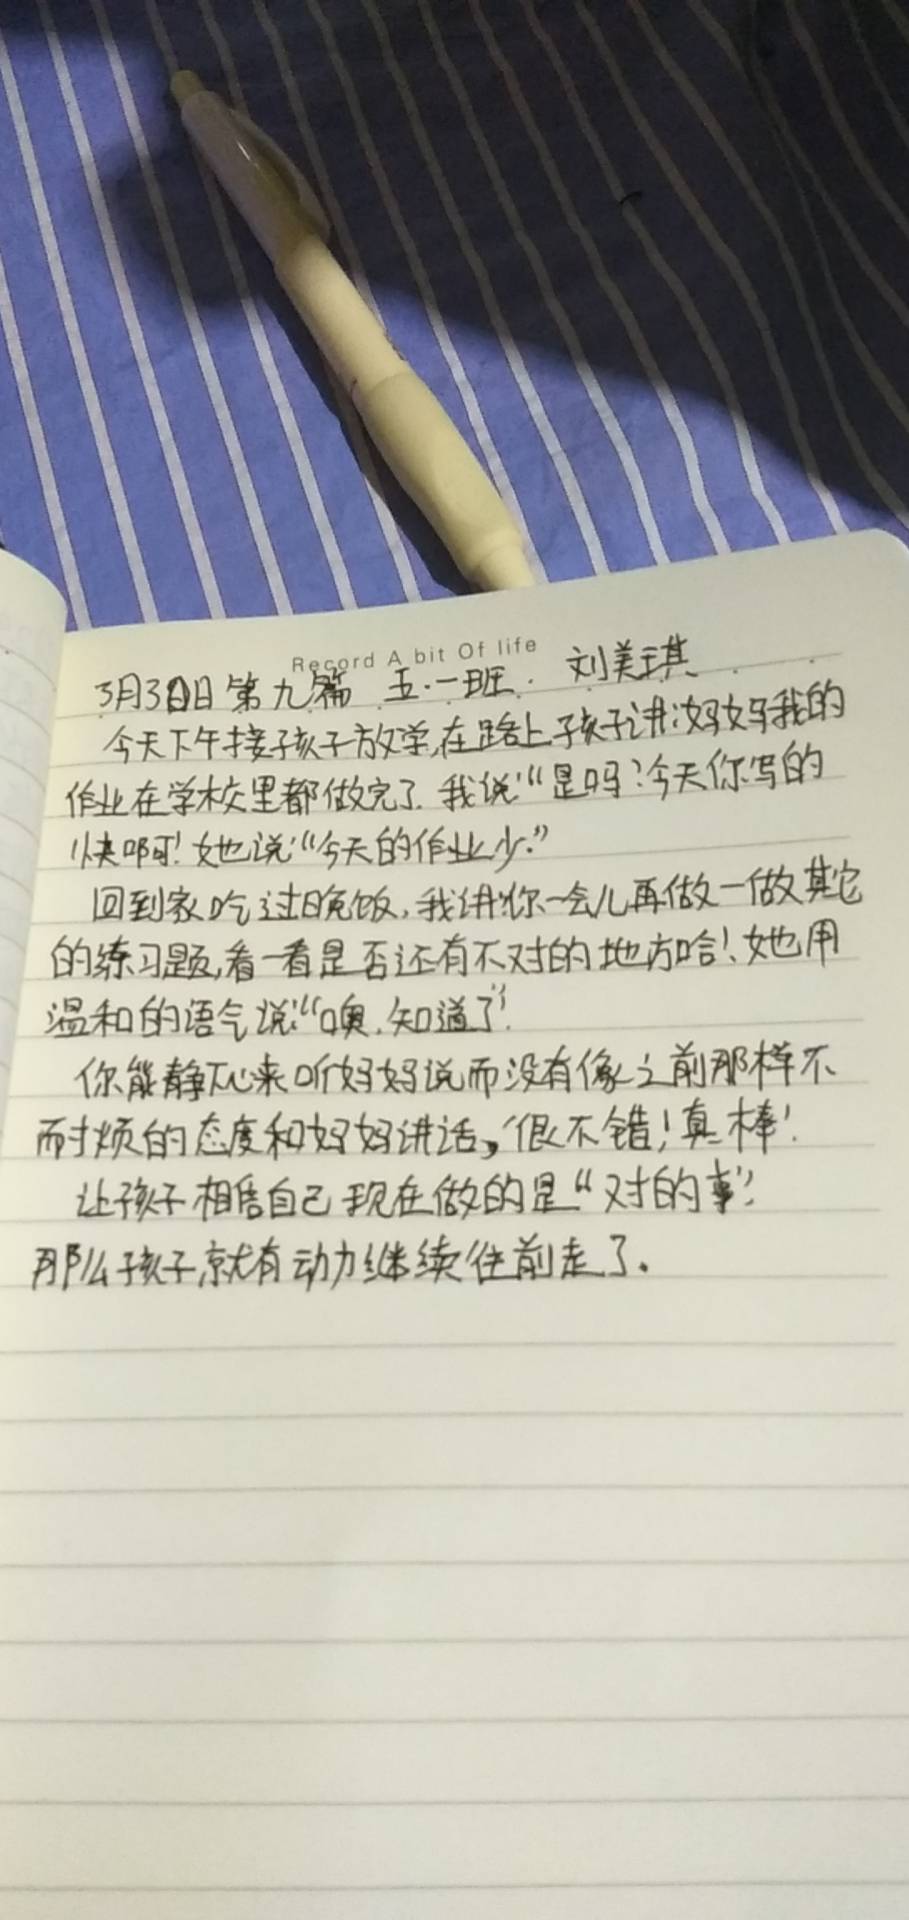 Record A bit Of life
3月30日第九篇 五.一班. 刘美琪
今天下午接孩子放学,在路上孩子讲:妈妈我的
作业在学校里都做完了.我说:“是吗?今天你写的
快啊!她说:“今天的作业少.”
回到家吃过晚饭,我讲:你一会儿再做一做其它
的练习题,看一看是否还有不对的地方哈!她用
温和的语气说:“噢.知道了”!
你能静下心来听妈妈说而没有像之前那样不
耐烦的态度和妈妈讲话,很不错!真棒!
让孩子相信自己现在做的是“对的事”!
那么孩子就有动力继续往前走了.